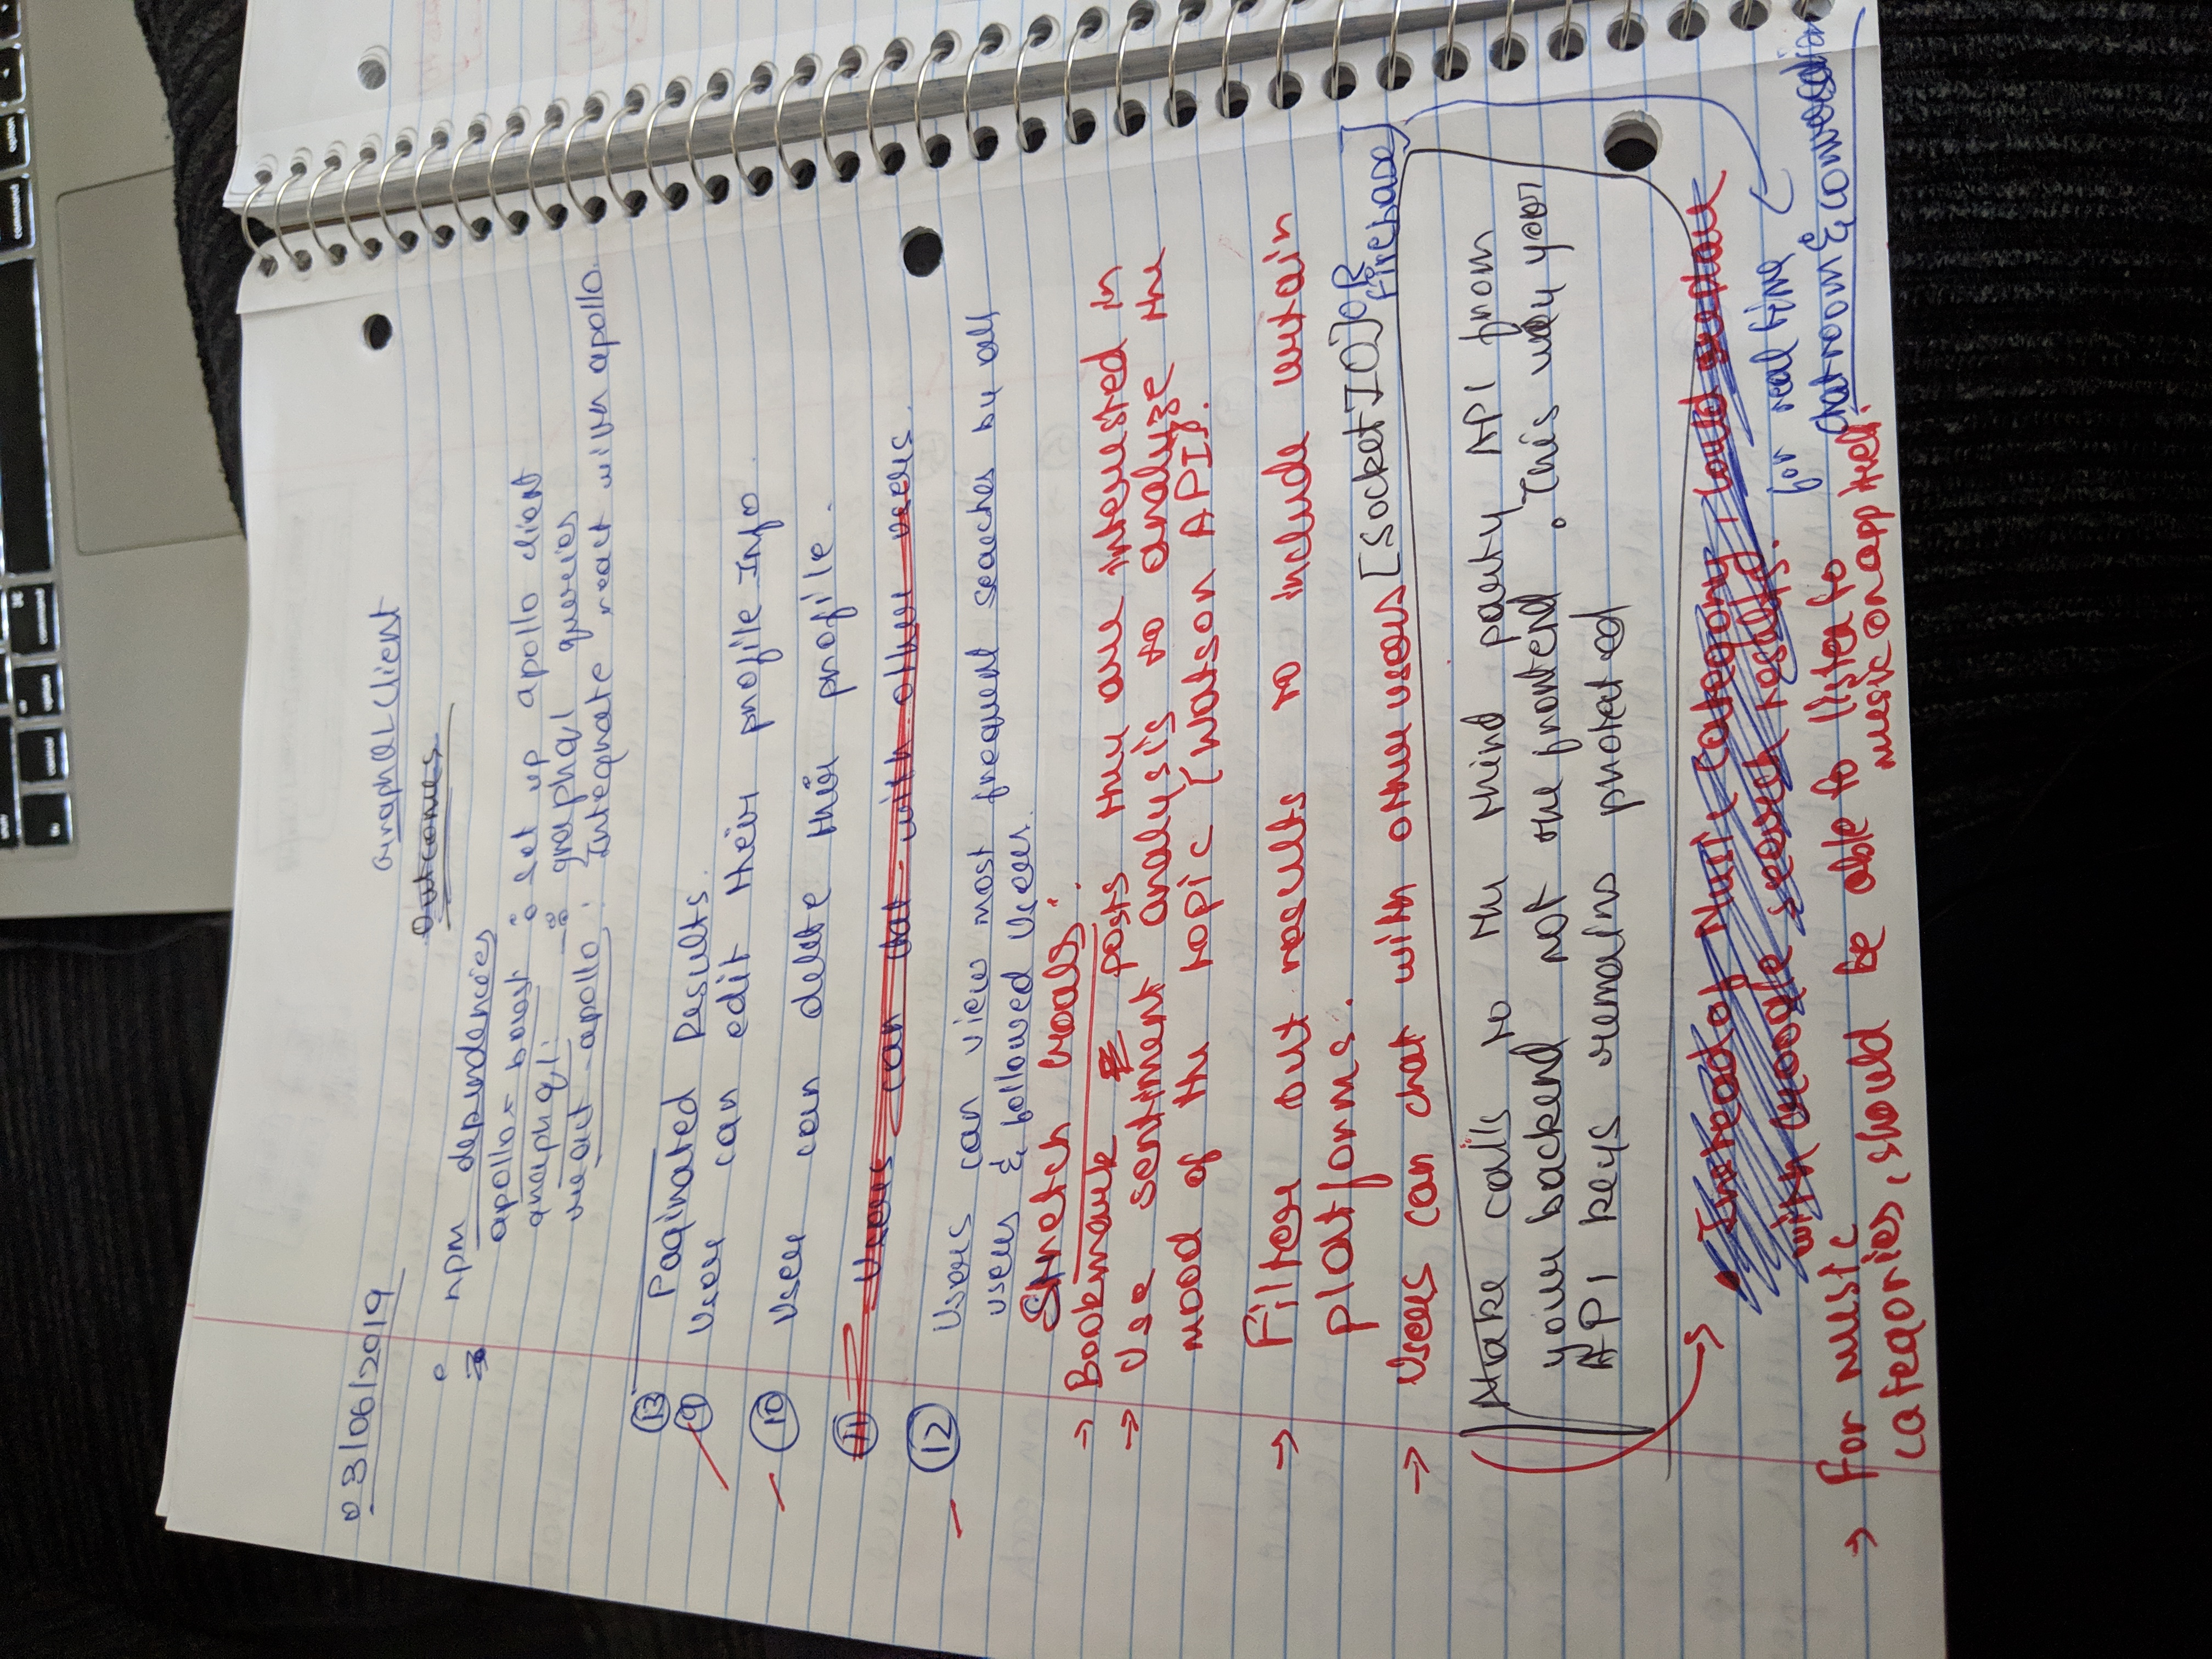 fn control option command command option
03/06/2019
GraphQL Client
Outcomes
npm dependencies
apollo-boost : set up apollo client
graphql: : graphql queries
react-apollo : Integrate react with apollo.
13 Paginated Results.
9 User can edit their profile Info.
10 User can delete their profile.
11 Users can chat with other users.
12 Users can view most frequent searches by all
users & followed users.
Stretch Goals:
→ Bookmark posts they are interested in
→ Use sentiment analysis to analyze the
mood of the topic (Watson API).
→ Filter out results to include certain
platforms.
→ Users can chat with other users [SocketIO] OR
Firebase]
Make calls to the third party API from
your backend not the frontend. This way your
API keys remains protected
→ Instead of Music Category, could replace
with Google search results.
for real time
chatroom & conversation
→ For music
categories, should be able to listen to
music on app itself.